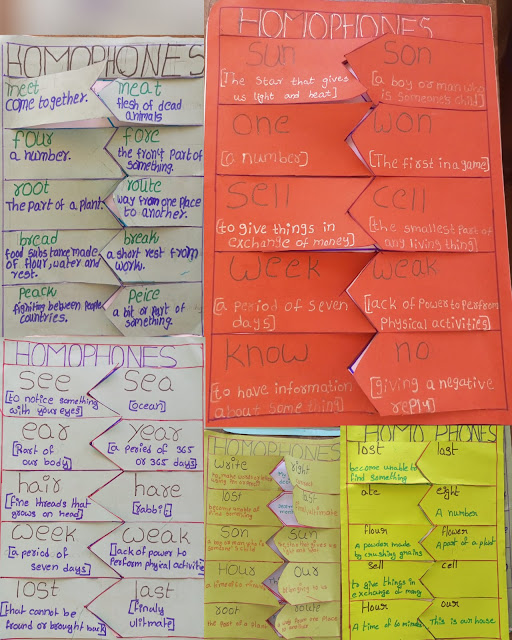 HOMOPHONES
meet
come together.
meat
flesh of dead
animals
four
a number.
fore
the front part of
something.
root
The part of a plant
route
way from one place
to another.
bread
food substance made
of flour, water and
rest.
break
a short rest from
work.
Peack
fighiting between people
countries.
Peice
a bit or part of
something.
HOMOPHONES
Sun
[The star that gives
us light and heat]
Son
[a boy or man who
is someone's child]
one
[a number]
won
[The first in a game]
Sell
[to give things in
exchange of money]
cell
[the smallest part of
any living thing]
week
[a period of seven
days]
weak
[lack of power to perfrom
physical activities]
know
[to have information
about some thing]
no
[giving a negative
reply]
HOMOPHONES
see
[to notice something
with your eyes]
sea
[ocean]
ear
our body]
year
[a period of 365
or 365 days]
hair
[Fine threads that
grows on head]
hare
[rabbit]
week
[a period of
seven days]
weak
[lack of power to
perform physical activities]
lost
[that cannot be
found or brought back]
last
[finaly
ultimate]
HOMOPHONES
write
right
lost
become unable to
find something
last
final, ultimate
Son
someone's child
Sun
Hour
a time of 60 minutes
our
belonging to us
root
the part of a plant
route
way from one place
to another
HOMOPHONES
lost
become unable to
find something
last
ate
eight
A number
flour
A powder made
by crushing grains
flower
A part of a plant
sell
to give things in
exchange of money
cell
Hour
A time of 60 minutes
our
This is our house